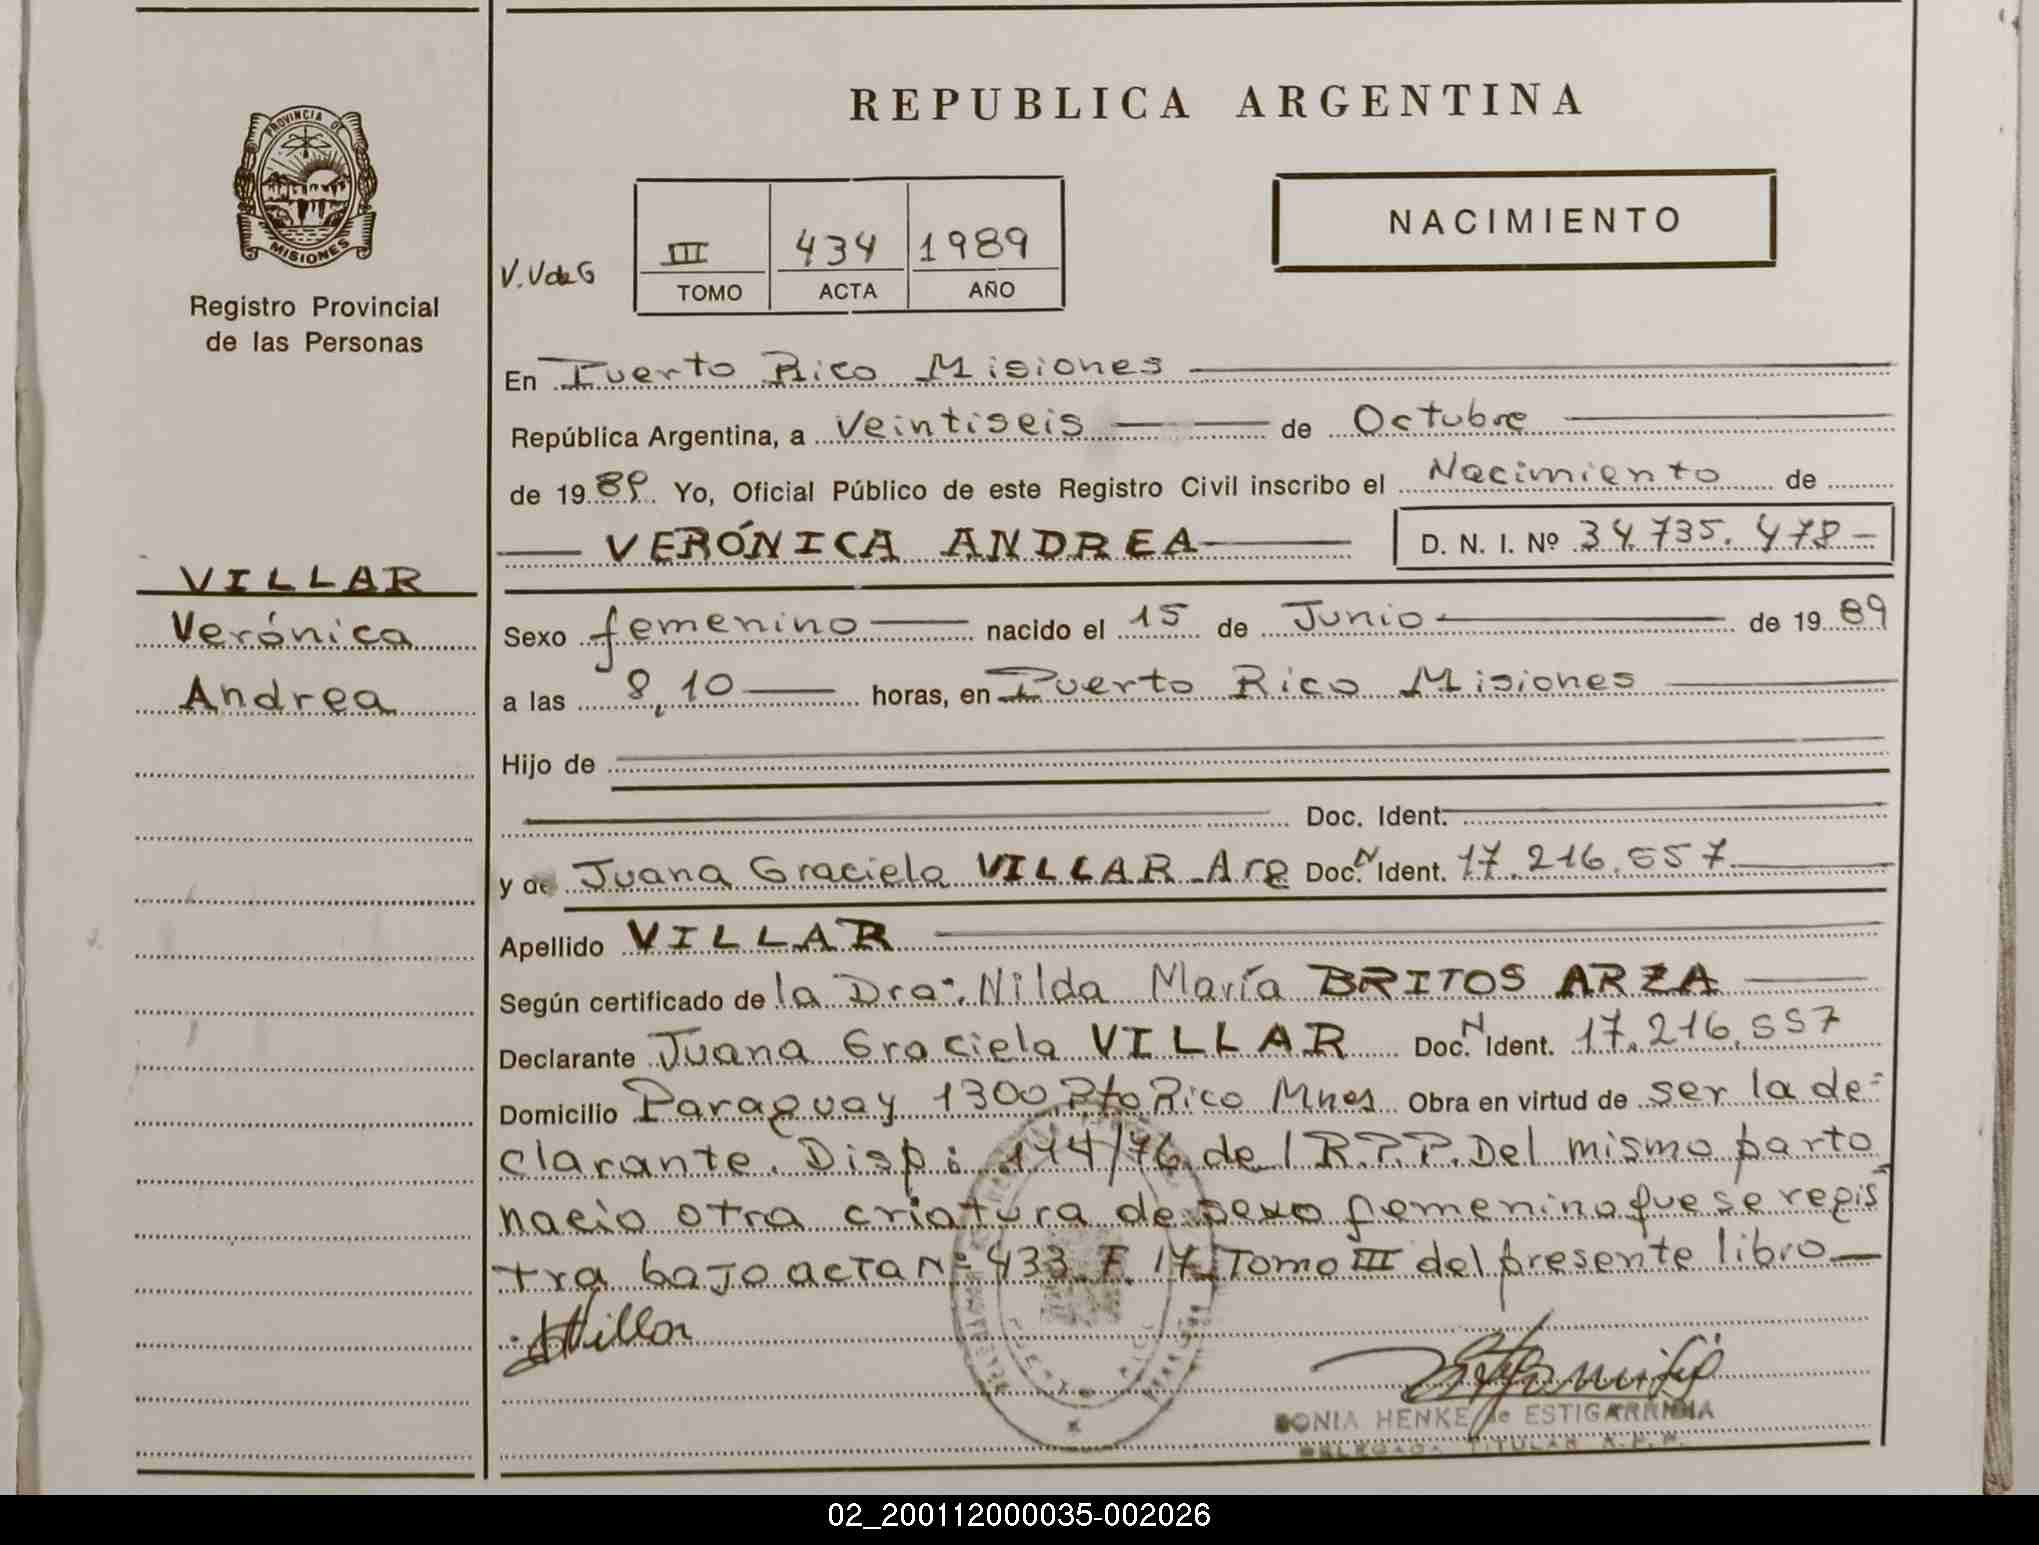 PROVINCIA DE
MISIONES
Registro Provincial
de las Personas
VILLAR
Verónica
Andrea
REPUBLICA ARGENTINA
NACIMIENTO
V.VdeG
III 434 1989
TOMO ACTA AÑO
En Puerto Rico Misiones
República Argentina, a Veintiseis de Octubre
de 1989 Yo, Oficial Público de este Registro Civil inscribo el Nacimiento de
VERÓNICA ANDREA D. N. I. Nº 34.735.478-
Sexo femenino nacido el 15 de Junio de 1989
a las 8,10 horas, en Puerto Rico Misiones
Hijo de
Doc. Ident.
y de Juana Graciela VILLAR Arg Doc. N Ident. 17.216.557
Apellido VILLAR
Según certificado de la Dra. Nilda María BRITOS ARZA
Declarante Juana Graciela VILLAR Doc. N Ident. 17.216.557
Domicilio Paraguay 1300 Pto Rico Mnes Obra en virtud de ser la de=
clarante. Disp: 144/76 del R.P.P. Del mismo parto
nacio otra criatura de sexo femenino que se regis
tra bajo acta Nº 433 F. 17 Tomo III del presente libro
JVillar
SONIA HENKE de ESTIGARRIBIA
DELEGADA TITULAR R.P.P.
02_200112000035-002026